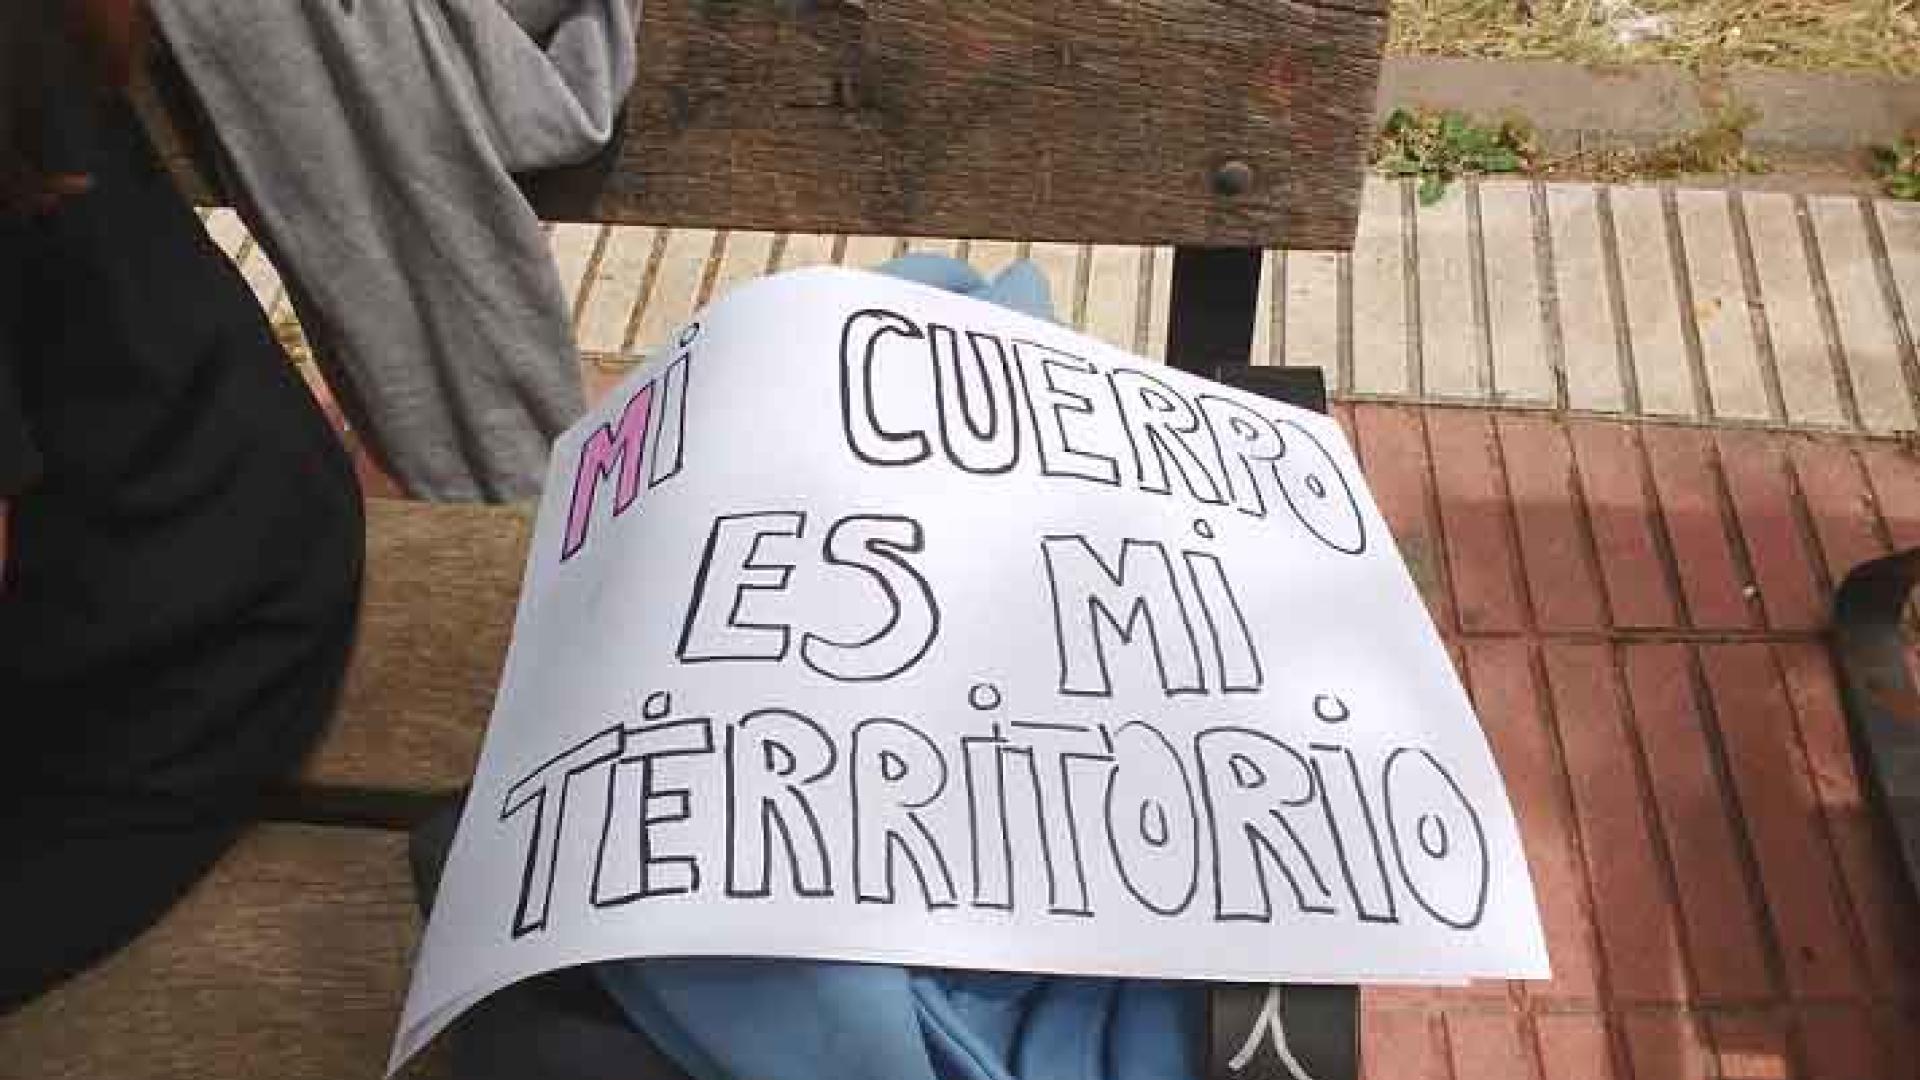 Mi CUERPO
ES Mi
TERRiTORiO